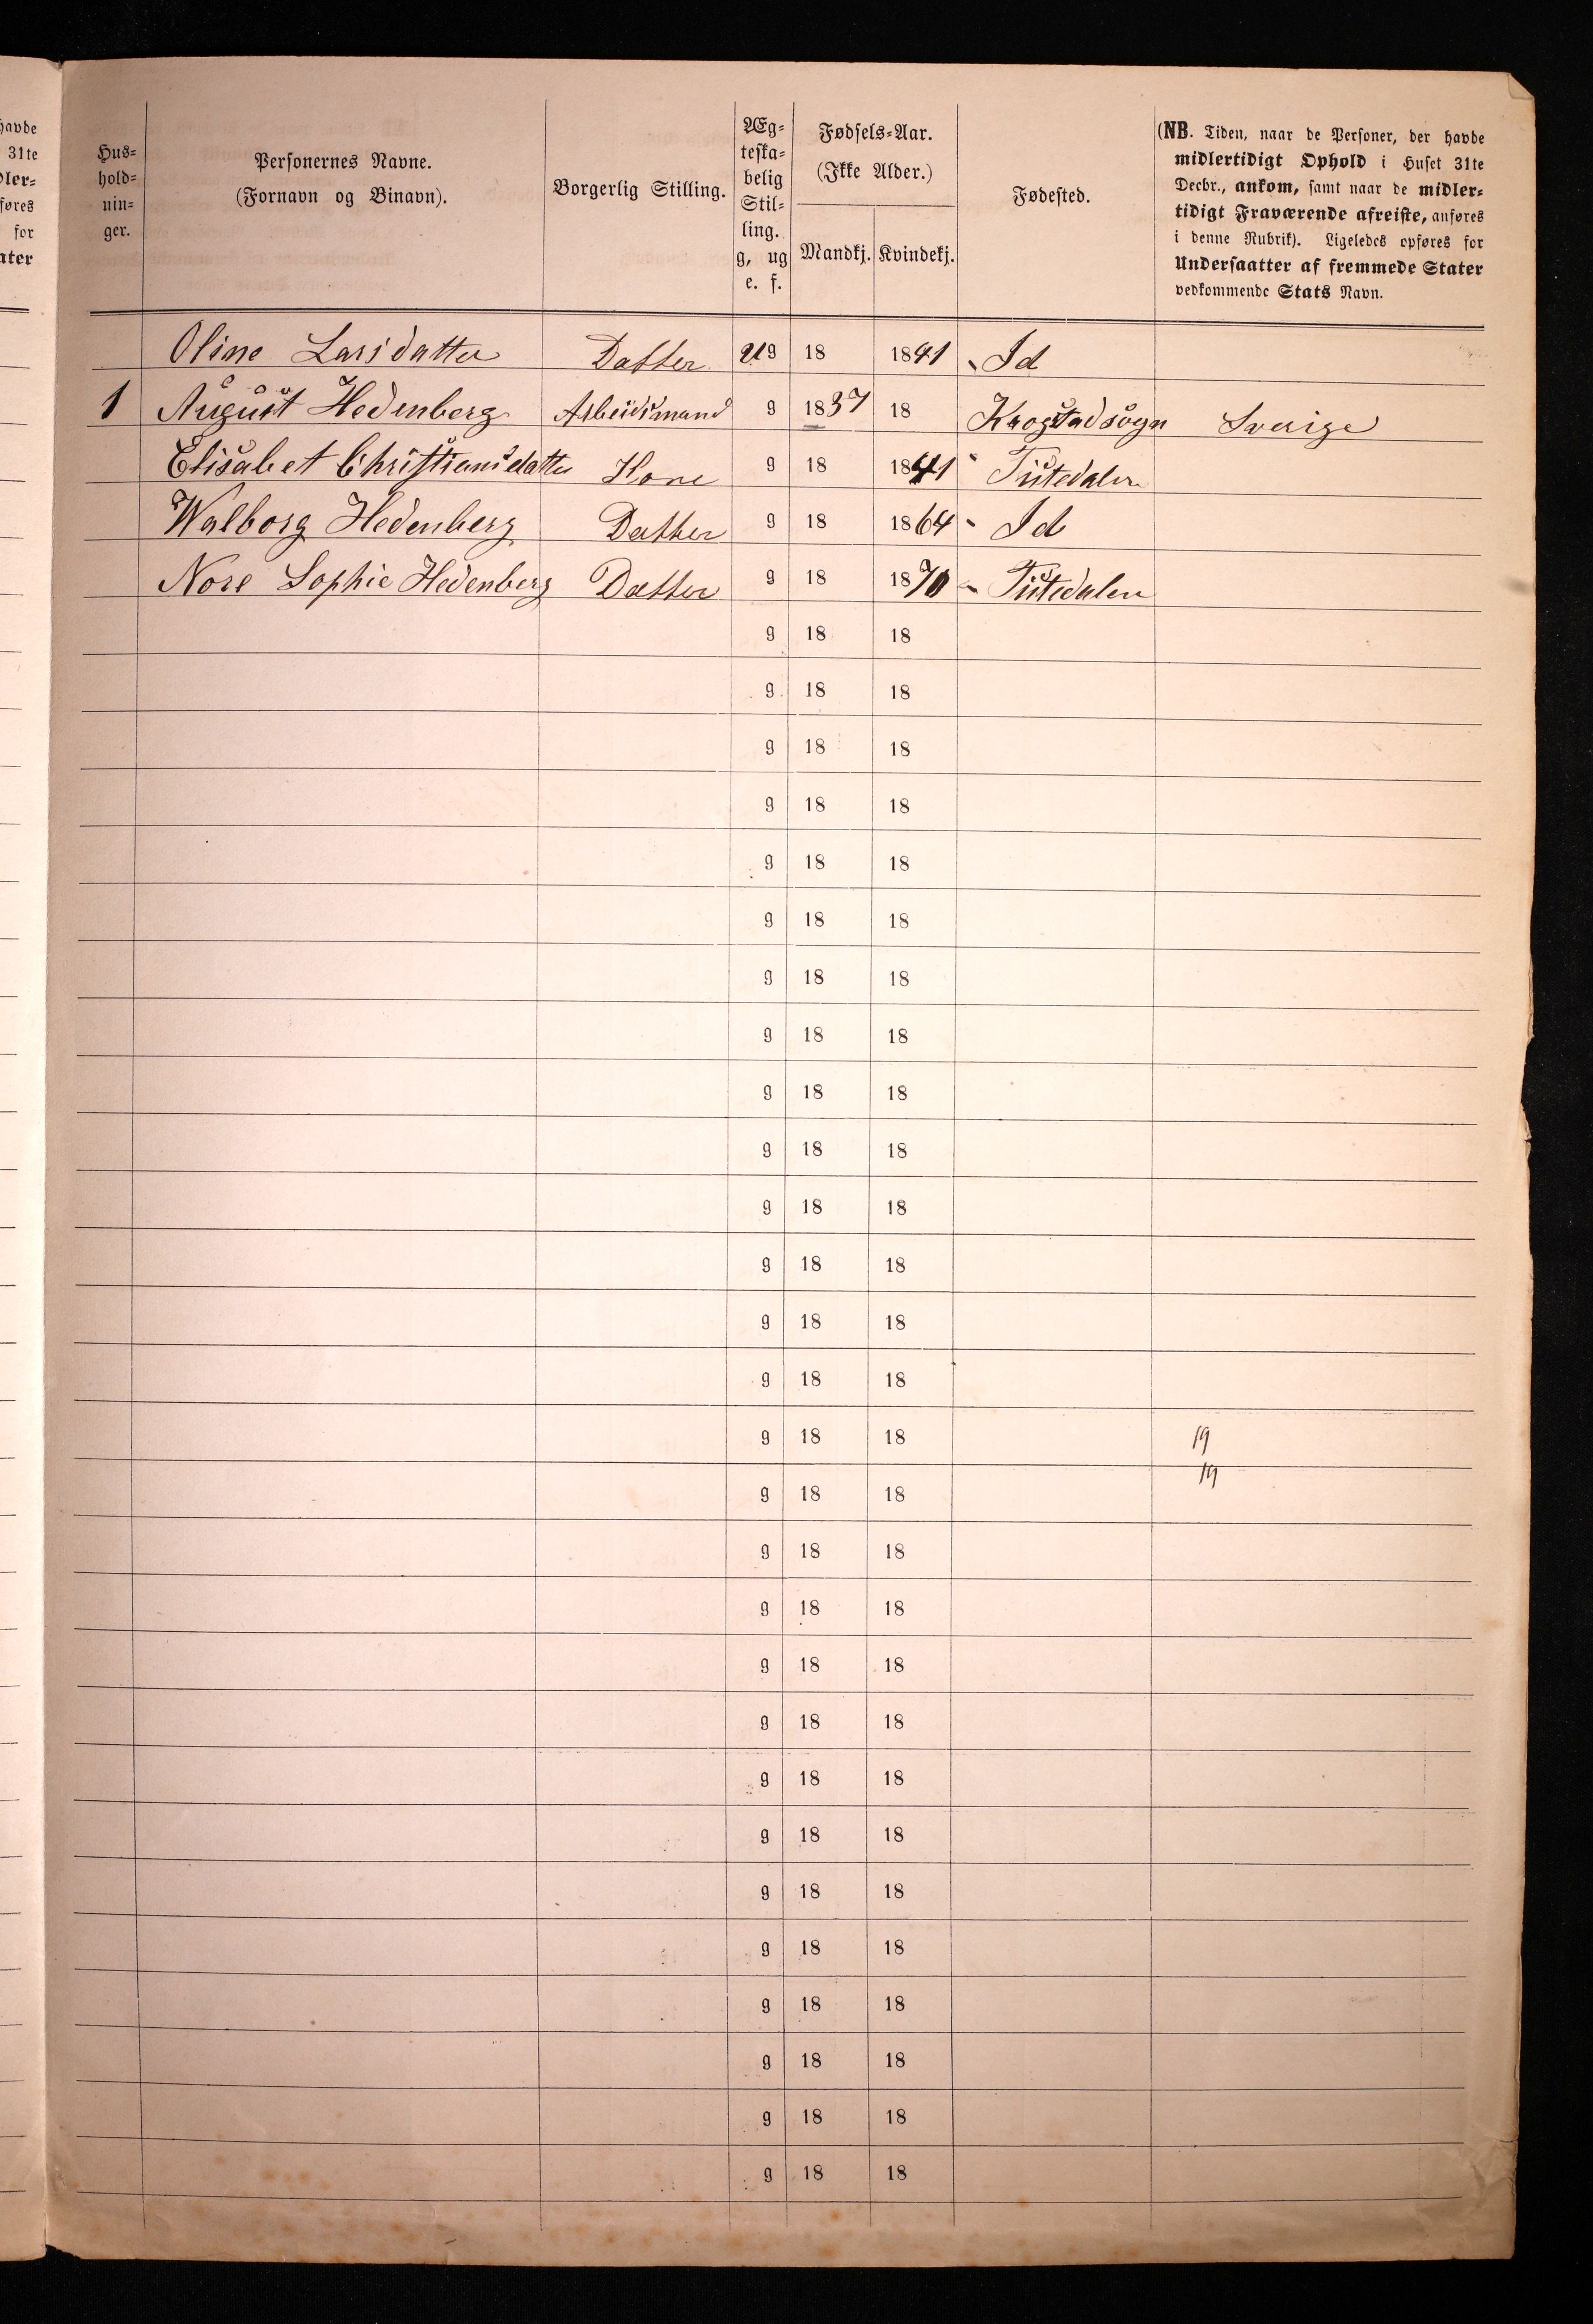 havde
31te
dler=
føres
for
ater
Hus=
hold=
nin=
ger.
Personernes Navne.
(Fornavn og Binavn).
Borgerlig Stilling.
Æg=
teska=
belig
Stil=
ling.
g, ug
e. f.
Fødsels=Aar.
(Ikke Alder.)
Mandkj. Kvindekj.
Fødested.
(NB. Tiden, naar de Personer, der havde
midlertidigt Ophold i Huset 31te
Decbr., ankom, samt naar de midler=
tidigt Fraværende afreiste, anføres
i denne Rubrik). Ligeledes opføres for
Undersaatter af fremmede Stater
vedkommende Stats Navn.
Oline Larsdatter Datter ug 18 1841 Id
1 August Hedenberg Arbeidsmand g 1837 18 Krogstadsogn Sverige
Elisabet Christiansdatter Kone g 18 1841 Tistedalen
Walborg Hedenberg Datter g 18 1864 Id
Nore Sophie Hedenberg Datter g 18 1870 Tistedalen
g 18 18
g 18 18
g 18 18
g 18 18
g 18 18
g 18 18
g 18 18
g 18 18
g 18 18
g 18 18
g 18 18
g 18 18
g 18 18
g 18 18
g 18 18 19
19
g 18 18
g 18 18
g 18 18
g 18 18
g 18 18
g 18 18
g 18 18
g 18 18
g 18 18
g 18 18
g 18 18
g 18 18
g 18 18